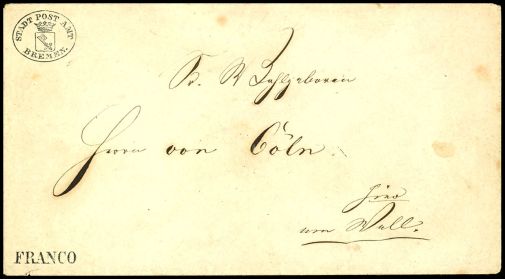 STADT POST AMT
BREMEN.
Sr. Wohlgeboren
Herrn von Cöln.
hier
am Wall.
FRANCO